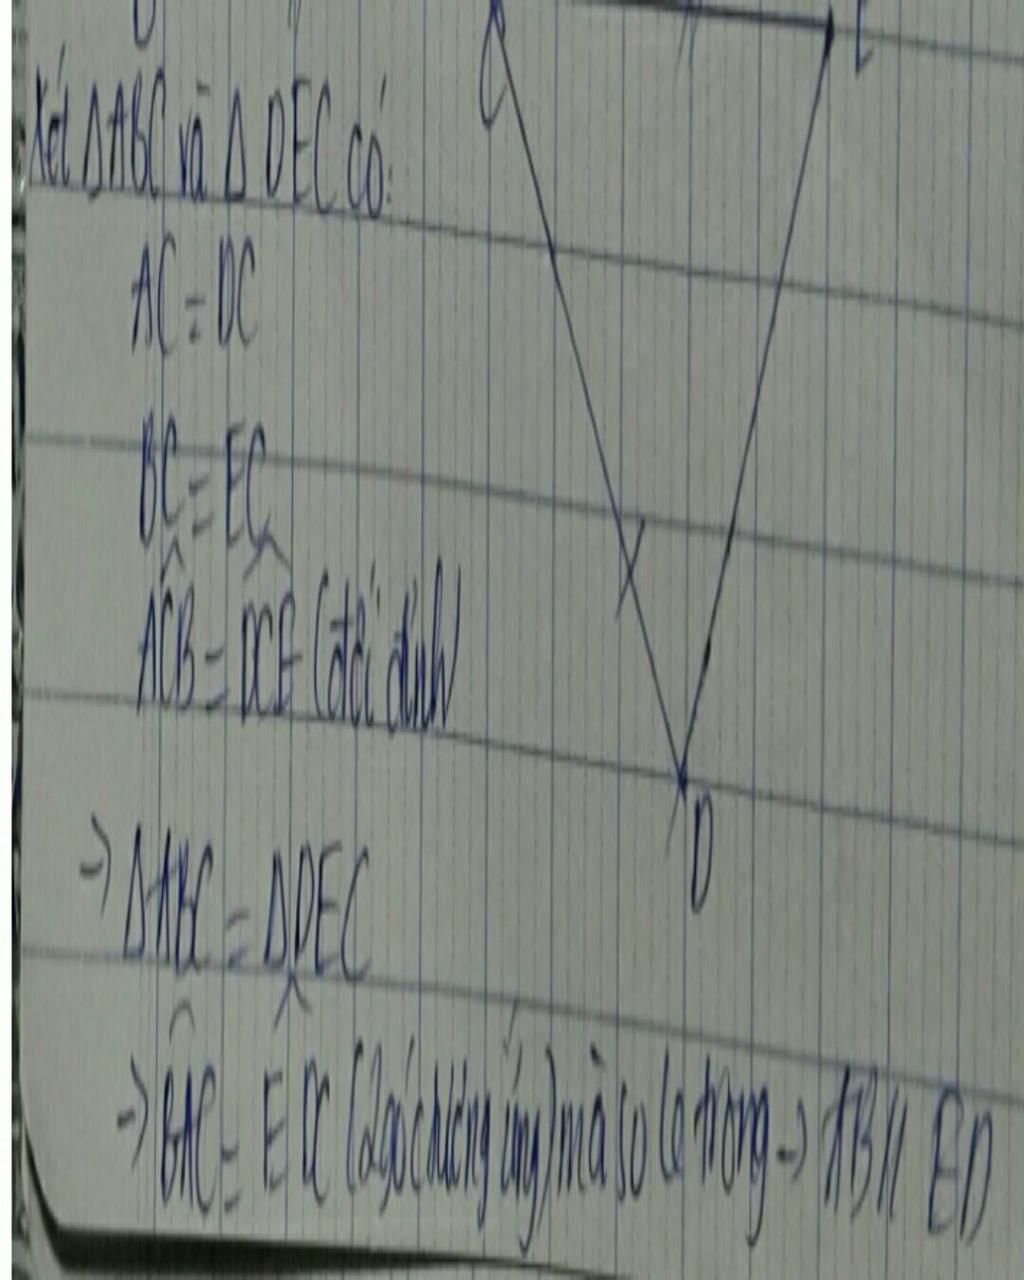 C
E
Xét ΔABC và Δ DEC có:
AC = DC
BC = EC
ACB = DCE (đối đỉnh)
D
→ ΔABC = ΔDEC
→ BAC = EDC (2 góc tương ứng) mà so le trong → AB // ED